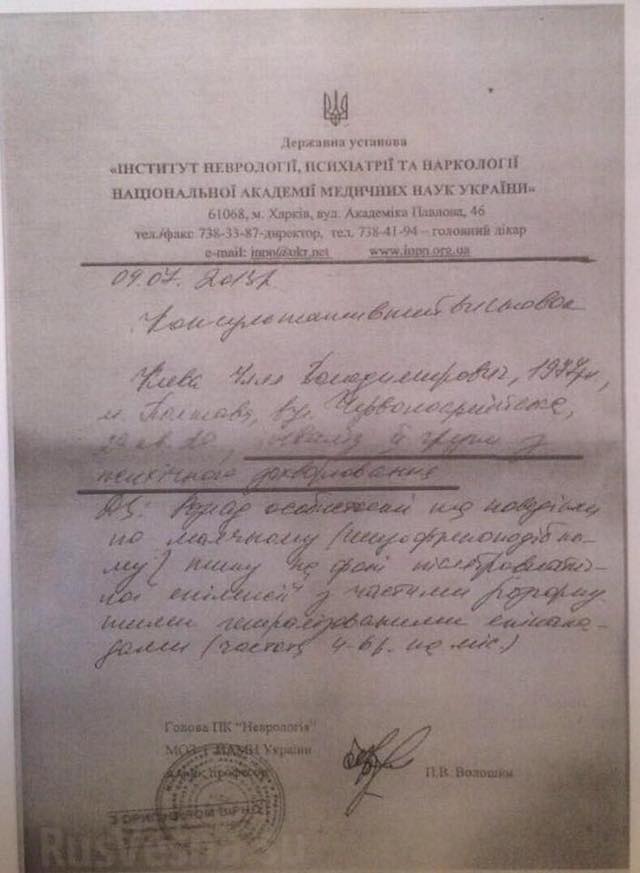 Державна установа
«ІНСТИТУТ НЕВРОЛОГІЇ, ПСИХІАТРІЇ ТА НАРКОЛОГІЇ
НАЦІОНАЛЬНОЇ АКАДЕМІЇ МЕДИЧНИХ НАУК УКРАЇНИ»
61068, м. Харків, вул. Академіка Павлова, 46
тел./факс 738-33-87-директор, тел. 738-41-94 – головний лікар
e-mail: inpn@ukr.net www.inpn.org.ua
09.07.
Консультативний висновок
Володимирович,
м. Полтава, вул. Червоноармійська,
інвалід II групи з
психічного захворювання
Розлад особистості та поведінки
по (шизофреноподібно-
му) типу на фоні післятравматич-
ної епілепсії з частими
генералізованими епіпа-
дами (частота 4-6 р. на міс.)
Голова ПК "Неврологія"
МОЗ і НАМН України
професор
П.В. Волошин
З ОРИГІНАЛОМ ВІРНО
Rusvesna.su